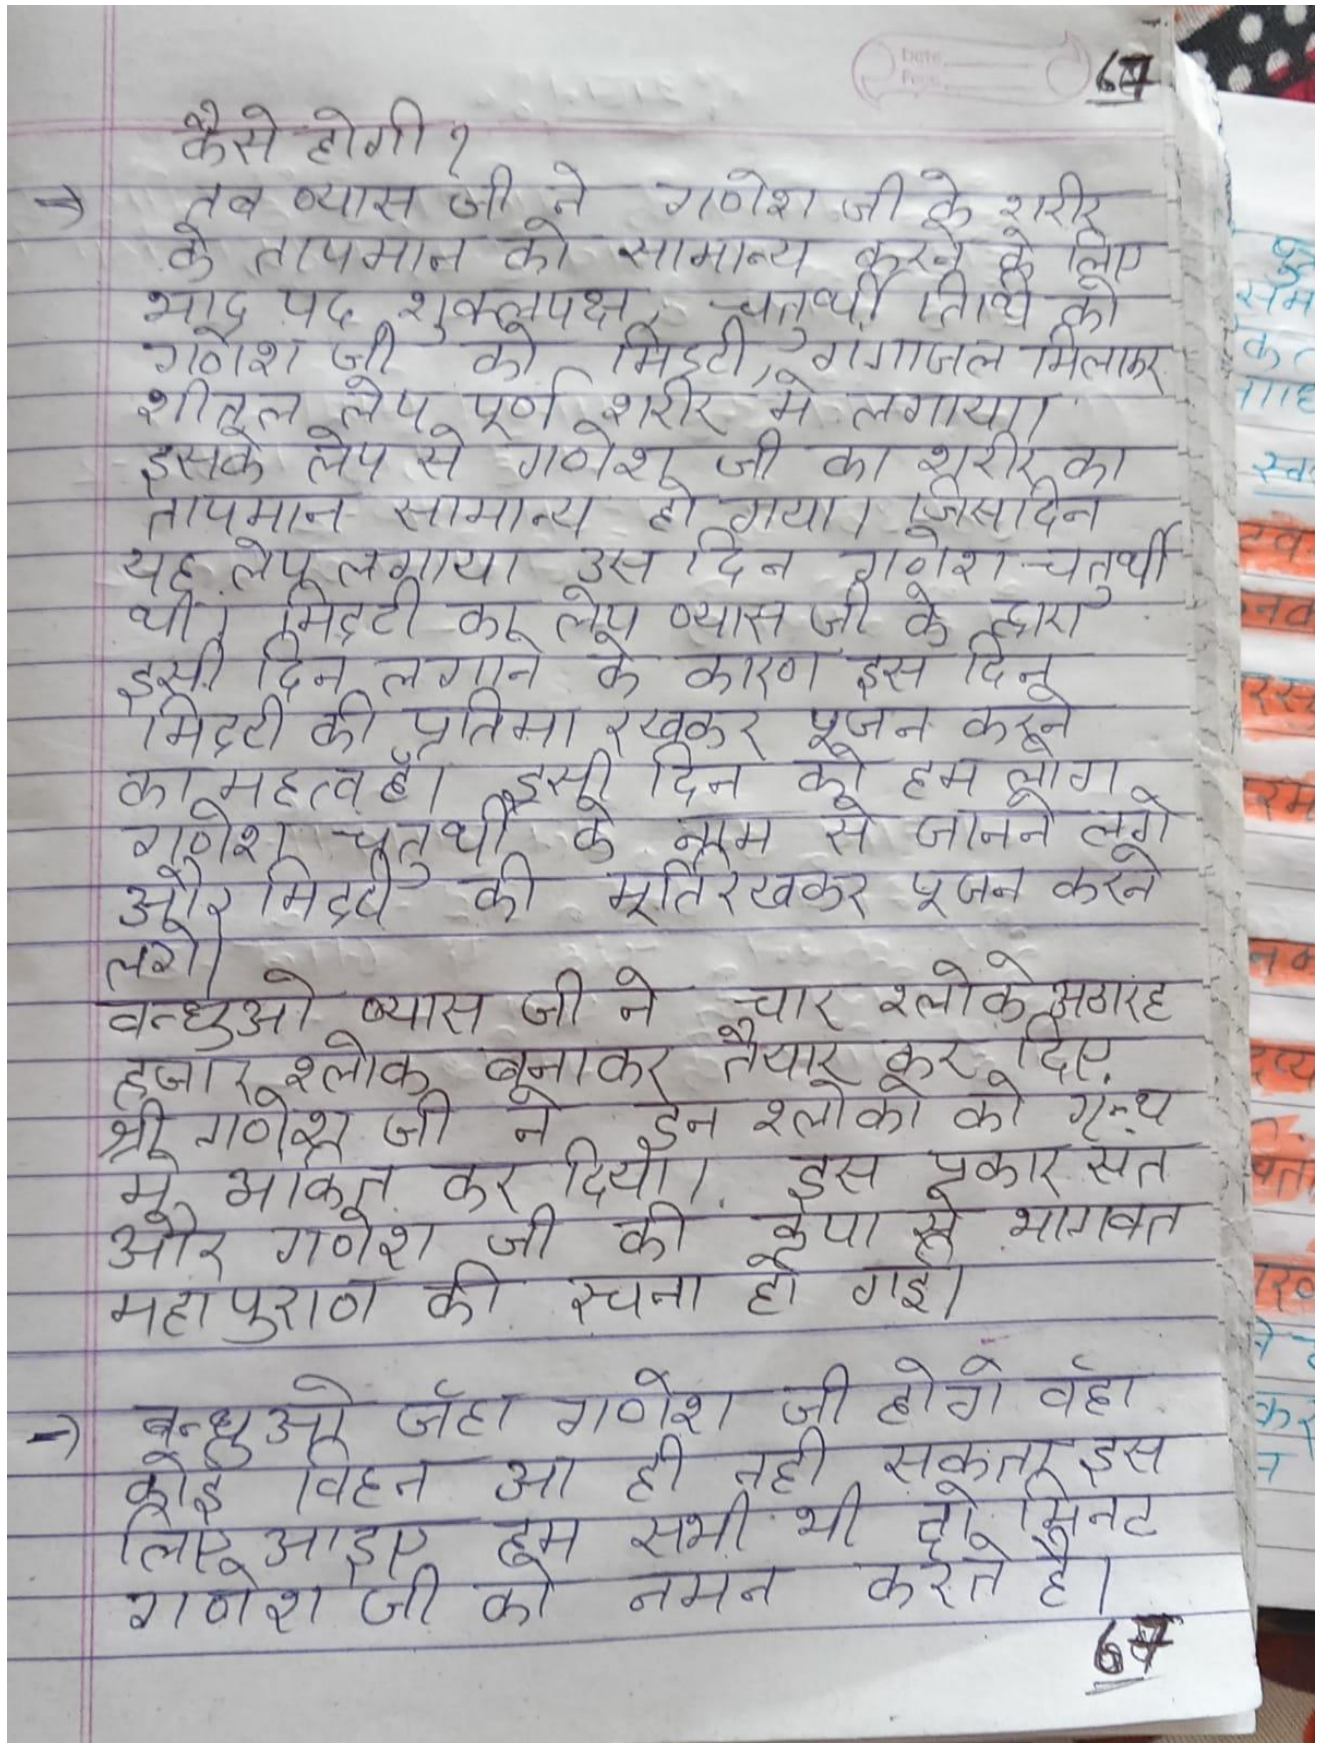 67
कैसे होगी ?
→ तब व्यास जी ने गणेश जी के शरीर
के तापमान को सामान्य करने के लिए
भाद्र पद शुक्लपक्ष, चतुर्थी तिथि को
गणेश जी को मिट्टी, गंगाजल मिलाकर
शीतल लेप पूर्ण शरीर मे लगाया।
इसके लेप से गणेश जी का शरीर का
तापमान सामान्य हो गया। जिसदिन
यह लेप लगाया उस दिन गणेश चतुर्थी
थी। मिट्टी का लेप व्यास जी के द्वारा
इसी दिन लगाने के कारण इस दिन
मिट्टी की प्रतिमा रखकर पूजन करने
का महत्व है। इसी दिन को हम लोग
गणेश चतुर्थी के नाम से जानने लगे
और मिट्टी की मूर्ति रखकर पूजन करने
लगे।
बन्धुओ व्यास जी ने चार श्लोके अठारह
हजार श्लोक बनाकर तैयार कर दिए
श्री गणेश जी ने इन श्लोको को ग्रन्थ
मे अंकित कर दिया। इस प्रकार संत
और गणेश जी की कृपा से भागवत
महापुराण की रचना हो गई।
→ बन्धुओ जॅहा गणेश जी होगे वॅहा
कोई विहन आ ही नही सकता इस
लिए आइए हम सभी भी दो मिनट
गणेश जी को नमन करते है।
67